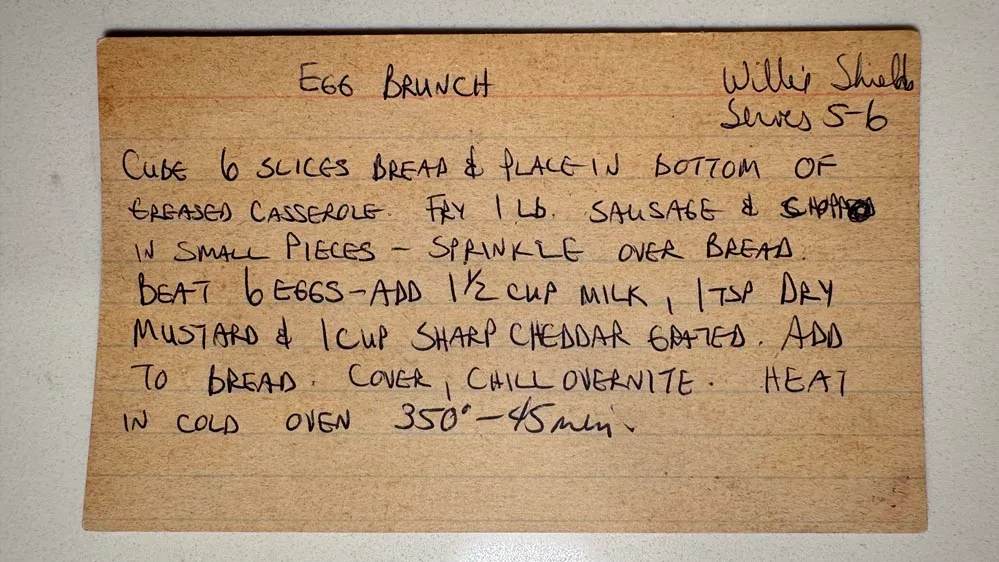 EGG BRUNCH
Willie Shields
Serves 5-6
CUBE 6 SLICES BREAD & PLACE IN BOTTOM OF
GREASED CASSEROLE. FRY 1 LB. SAUSAGE &
IN SMALL PIECES – SPRINKLE OVER BREAD.
BEAT 6 EGGS – ADD 1 1/2 CUP MILK, 1 TSP DRY
MUSTARD & 1 CUP SHARP CHEDDAR GRATED. ADD
TO BREAD. COVER, CHILL OVERNITE. HEAT
IN COLD OVEN 350° – 45 min.